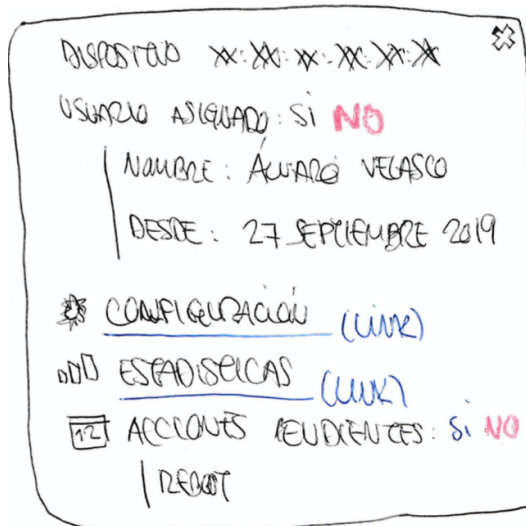 DISPOSITIVO XX:XX:XX:XX:XX:XX
USUARIO ASIGNADO: SI NO
NOMBRE: ÁLVARO VELASCO
DESDE: 27 SEPTIEMBRE 2019
CONFIGURACIÓN (LINK)
ESTADISTICAS (LINK)
12 ACCIONES PENDIENTES: SI NO
REBOOT